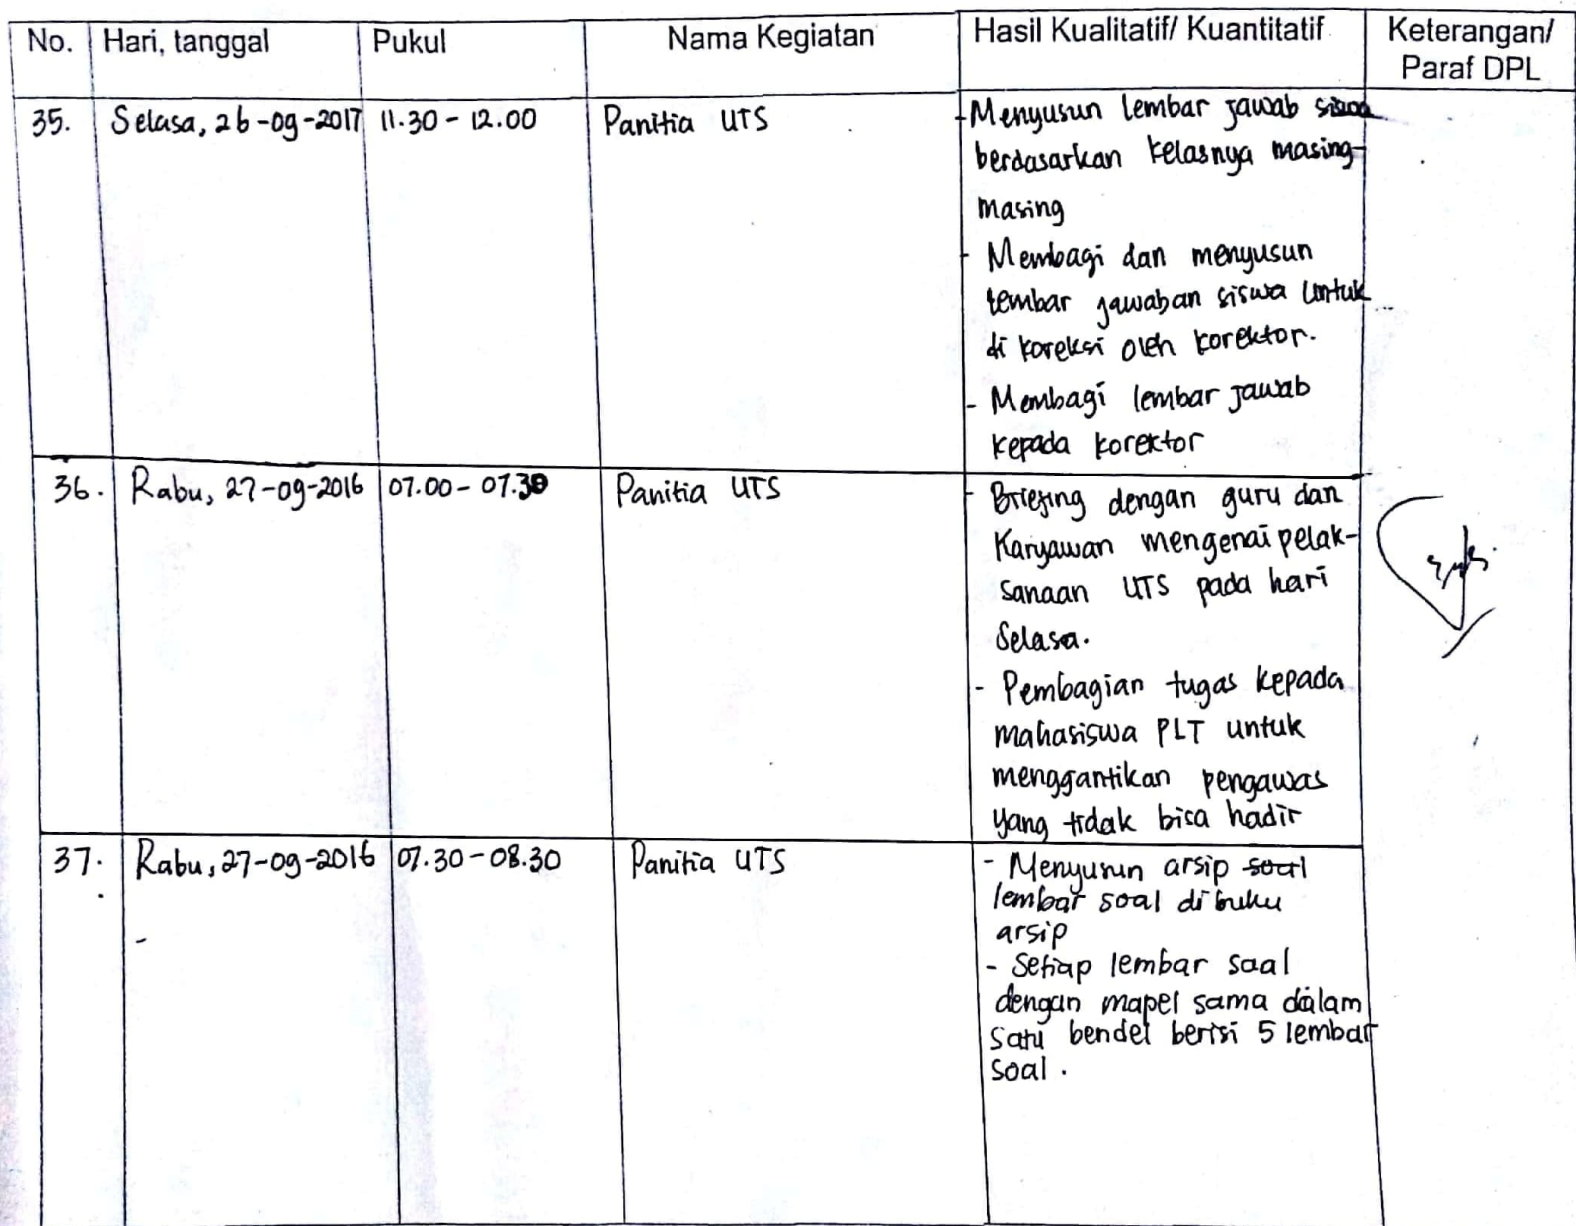 No. Hari, tanggal Pukul Nama Kegiatan Hasil Kualitatif/ Kuantitatif Keterangan/
Paraf DPL
35. Selasa, 26-09-2017 11.30 - 12.00 Panitia UTS - Menyusun lembar jawab siswa
berdasarkan kelasnya masing-
masing
- Membagi dan menyusun
lembar jawaban siswa untuk
di koreksi oleh korektor.
- Membagi lembar jawab
kepada korektor
36. Rabu, 27-09-2016 07.00 - 07.30 Panitia UTS - Briefing dengan guru dan
Karyawan mengenai pelak-
sanaan UTS pada hari
Selasa.
- Pembagian tugas kepada
mahasiswa PLT untuk
menggantikan pengawas
yang tidak bisa hadir
37. Rabu, 27-09-2016 07.30 - 08.30 Panitia UTS - Menyusun arsip soal
lembar soal di buku
arsip
- Setiap lembar soal
dengan mapel sama dalam
satu bendel berisi 5 lembar
soal.